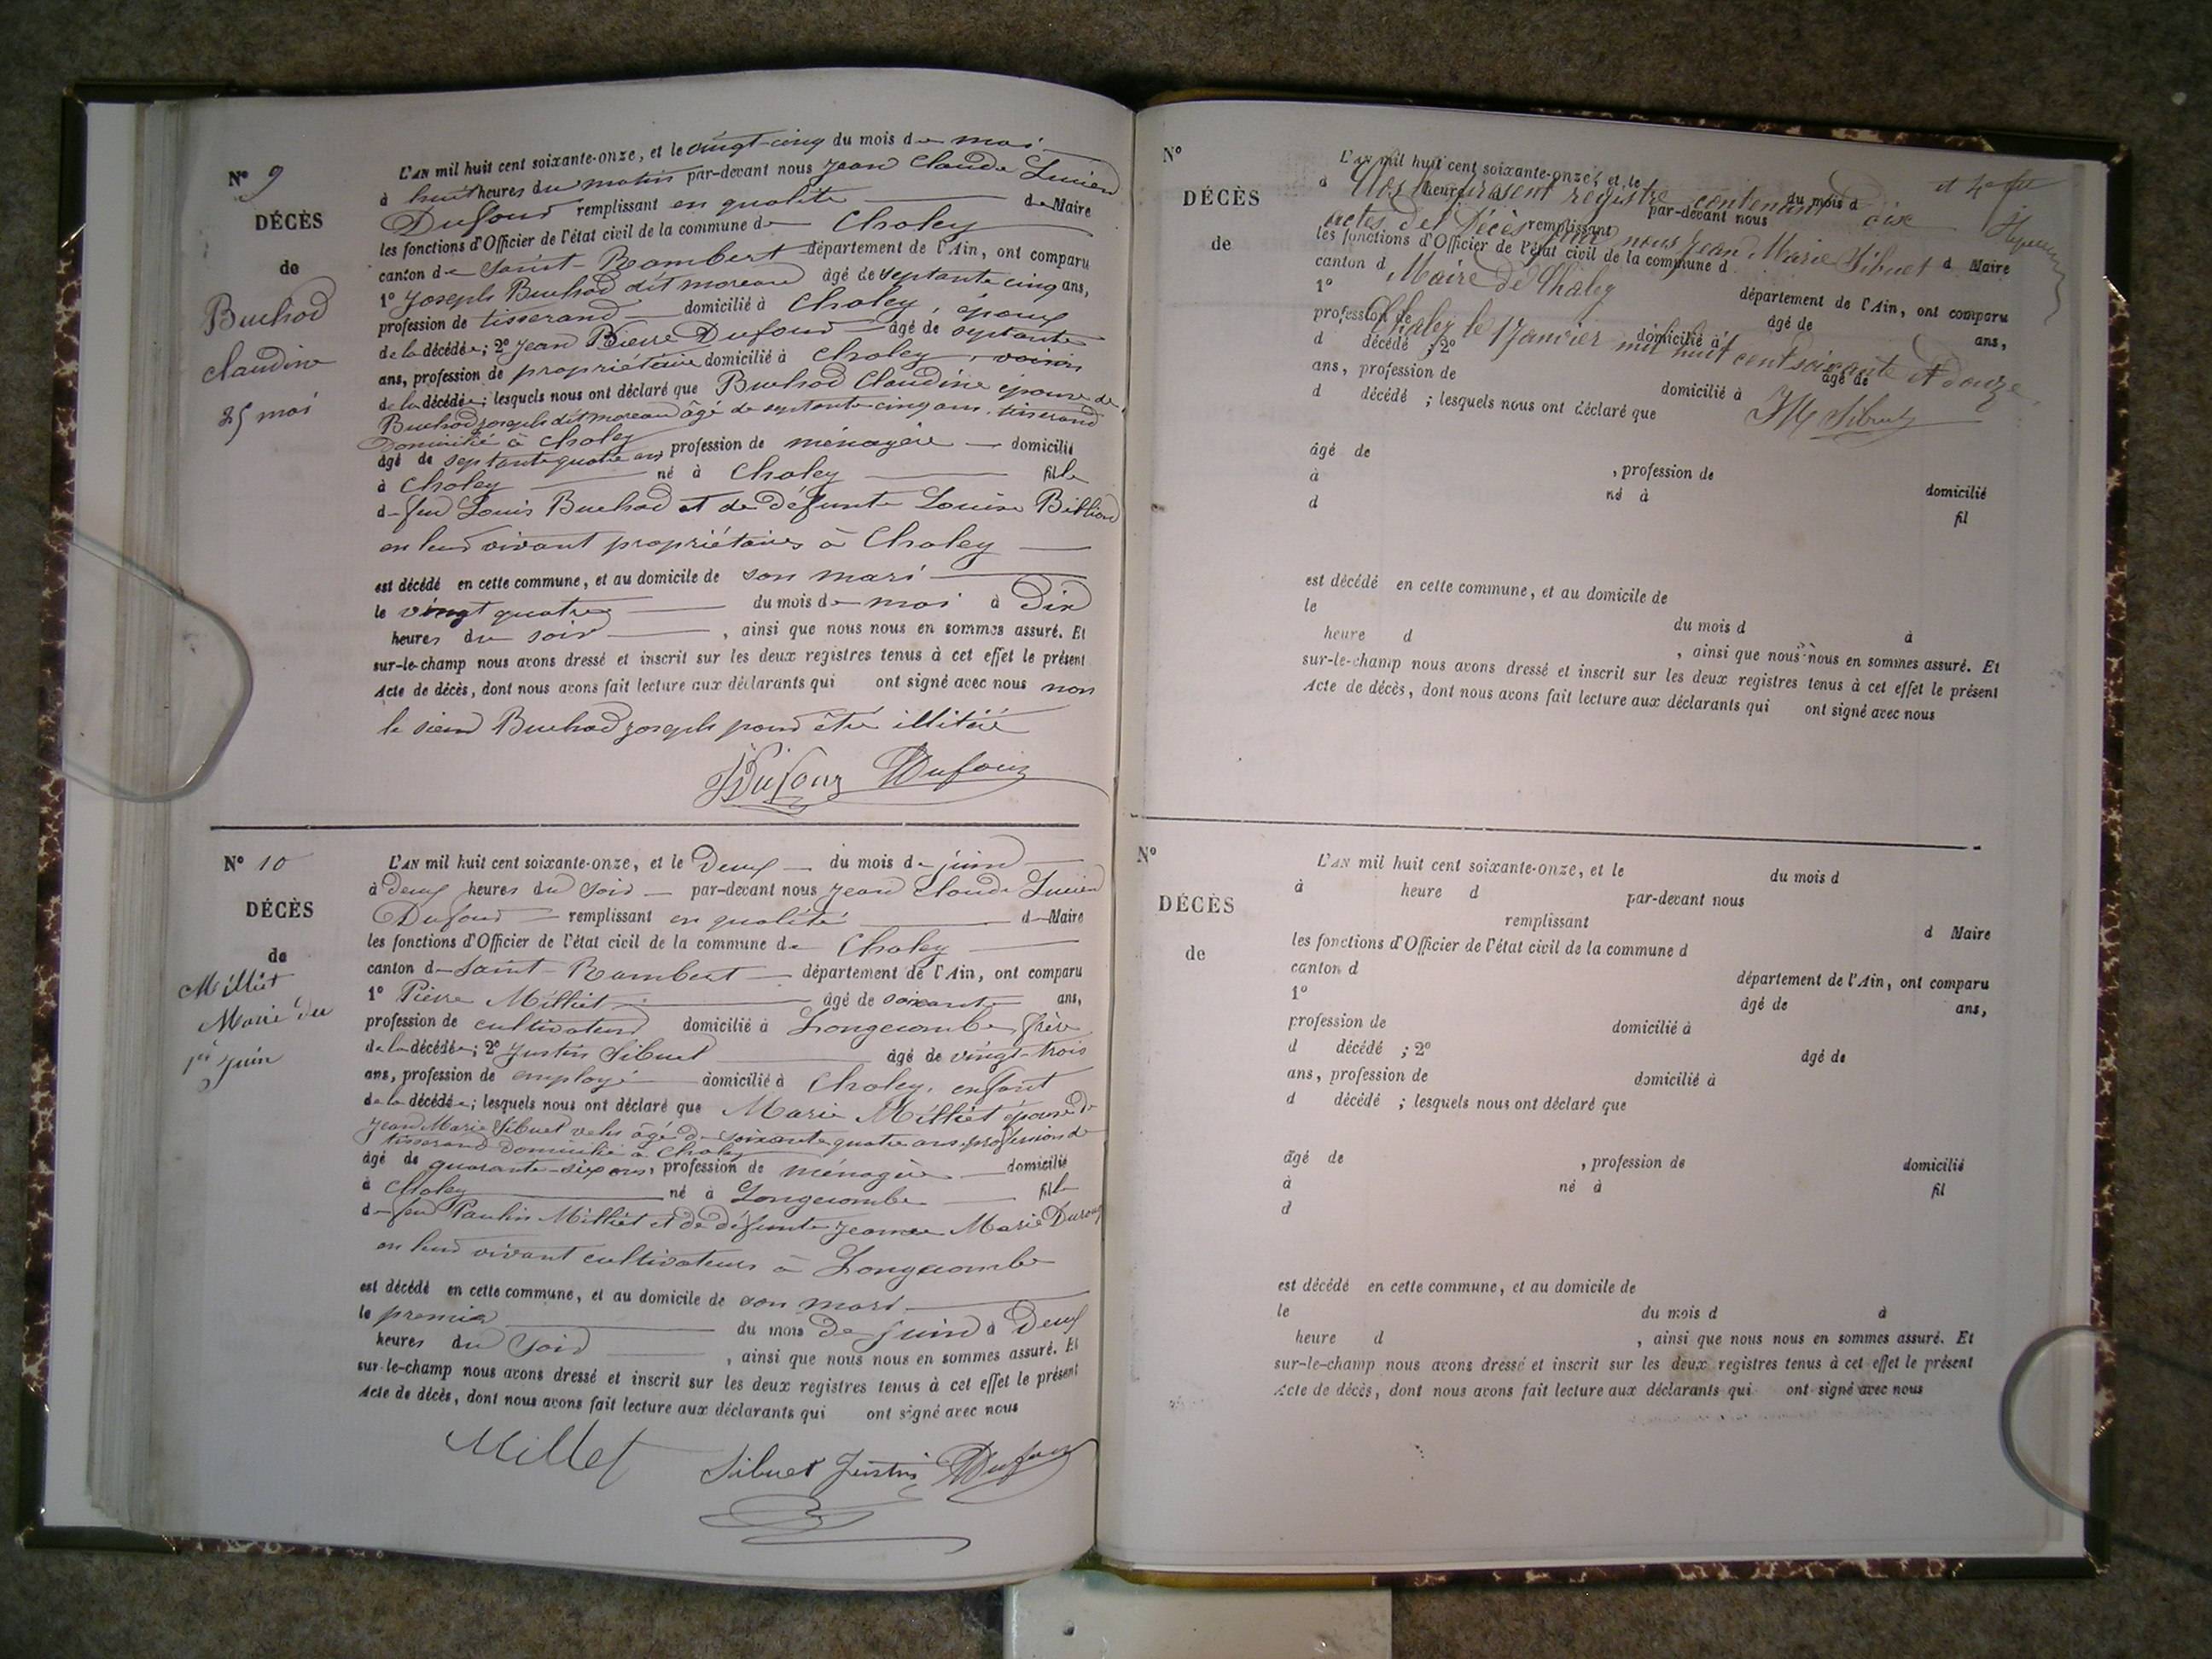 N° 9
DÉCÈS
de
Buchod
Claudine
25 mai
L'AN mil huit cent soixante-onze, et le vingt-cinq du mois de mai
à huit heures du matin par-devant nous Jean Claude Lucien
Dufour remplissant en qualité de Maire
les fonctions d'Officier de l'état civil de la commune de Chaley
canton de Saint-Rambert département de l'Ain, ont comparu
1° Joseph Buchod dit moreau âgé de septante cinq ans,
profession de tisserand domicilié à Chaley, époux
de la décédée; 2° Jean Pierre Dufour âgé de septante
ans, profession de propriétaire domicilié à Chaley, voisin
de la décédée; lesquels nous ont déclaré que Buchod Claudine épouse de
Buchod joseph dit moreau âgé de septante cinq ans, tisserand
Domicilié à Chaley
âgé de septante quatre ans, profession de ménagère domicilié
à Chaley né à Chaley fille
de feu Louis Buchod et de défunte Louise Billion
en leur vivant propriétaires à Chaley
est décédé en cette commune, et au domicile de son mari
le vingt quatre du mois de mai à Dix
heures du soir, ainsi que nous nous en sommes assuré. Et
sur-le-champ nous avons dressé et inscrit sur les deux registres tenus à cet effet le présent
Acte de décès, dont nous avons fait lecture aux déclarants qui ont signé avec nous non
le sieur Buchod joseph pour être illitéré
Dufour Dufour
N° 10
DÉCÈS
de
Milliet
Marie du
1er Juin
L'AN mil huit cent soixante-onze, et le Deux du mois de juin
à deux heures du soir par-devant nous Jean Claude Lucien
Dufour remplissant en qualité de Maire
les fonctions d'Officier de l'état civil de la commune de Chaley
canton de Saint-Rambert département de l'Ain, ont comparu
1° Pierre Milliet âgé de soixante ans,
profession de cultivateur domicilié à Longecombe, frère
de la décédée; 2° Justin Sibuet âgé de vingt-trois
ans, profession de employé domicilié à Chaley, enfant
de la décédée; lesquels nous ont déclaré que Marie Milliet épouse de
Jean Marie Sibuet âgé de soixante quatre ans, profession de
tisserand domicilié à Chaley
âgé de quarante-six ans, profession de ménagère domicilié
à Chaley né à Longecombe fille
de feu Paulin Milliet et de défunte Jeanne Marie
en leur vivant cultivateurs à Longecombe
est décédé en cette commune, et au domicile de son mari
le premier du mois De juin à Deux
heures du Soir, ainsi que nous nous en sommes assuré. Et
sur-le-champ nous avons dressé et inscrit sur les deux registres tenus à cet effet le présent
Acte de décès, dont nous avons fait lecture aux déclarants qui ont signé avec nous
Millet Sibuet Justin Dufour
N°
DÉCÈS
de
L'AN mil huit cent soixante-onze, et le du mois d
à heure d par-devant nous
remplissant d Maire
les fonctions d'Officier de l'état civil de la commune d
canton d département de l'Ain, ont comparu
1° âgé de ans,
profession de domicilié à
d décédé ; 2° âgé de
ans, profession de domicilié à
d décédé ; lesquels nous ont déclaré que
présent registre contenant dix
actes de Décès par nous Jean Marie Sibuet
Maire de Chaley
Chaley le 1 Janvier mil huit cent soixante et douze
JM Sibuet
âgé de , profession de domicilié
à né à fil
d
est décédé en cette commune, et au domicile de
le du mois d à
heure d , ainsi que nous nous en sommes assuré. Et
sur-le-champ nous avons dressé et inscrit sur les deux registres tenus à cet effet le présent
Acte de décès, dont nous avons fait lecture aux déclarants qui ont signé avec nous
N°
DÉCÈS
de
L'AN mil huit cent soixante-onze, et le du mois d
à heure d par-devant nous
remplissant d Maire
les fonctions d'Officier de l'état civil de la commune d
canton d département de l'Ain, ont comparu
1° âgé de ans,
profession de domicilié à
d décédé ; 2° âgé de
ans, profession de domicilié à
d décédé ; lesquels nous ont déclaré que
âgé de , profession de domicilié
à né à fil
d
est décédé en cette commune, et au domicile de
le du mois d à
heure d , ainsi que nous nous en sommes assuré. Et
sur-le-champ nous avons dressé et inscrit sur les deux registres tenus à cet effet le présent
Acte de décès, dont nous avons fait lecture aux déclarants qui ont signé avec nous